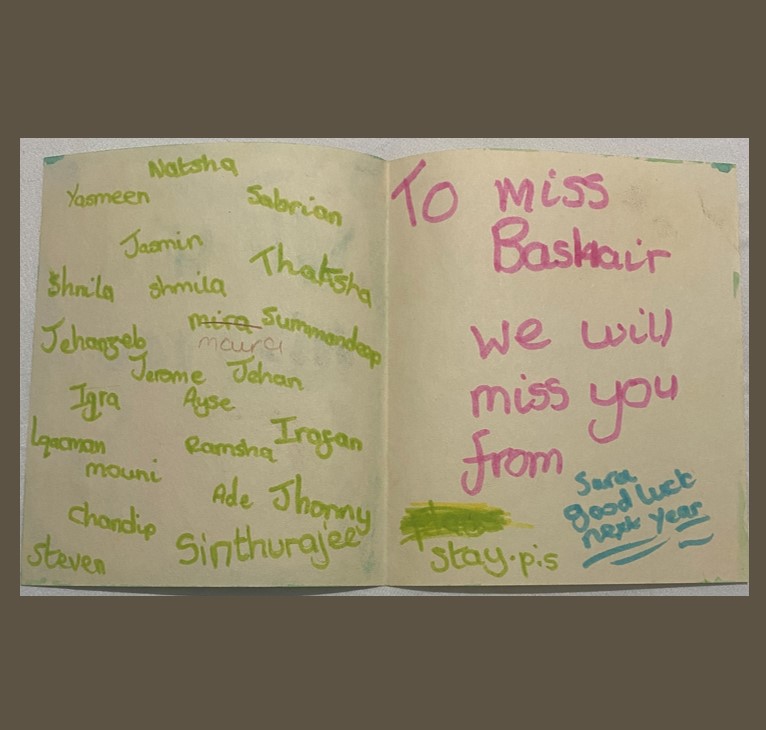 Natsha
Yasmeen
Sabrian
Jasmin
Thatsha
Shnila
shmila
mira
Summandeep
maira
Jehanzeb
Jerome
Jehan
Iqra
Ayse
Iragan
Lqacman
Ramsha
mouni
Ade
Jhonny
Chandip
Sinthurajee
Steven
To miss
Bashair
we will
miss you
from
Sara
good luck
next year
stay.p.s